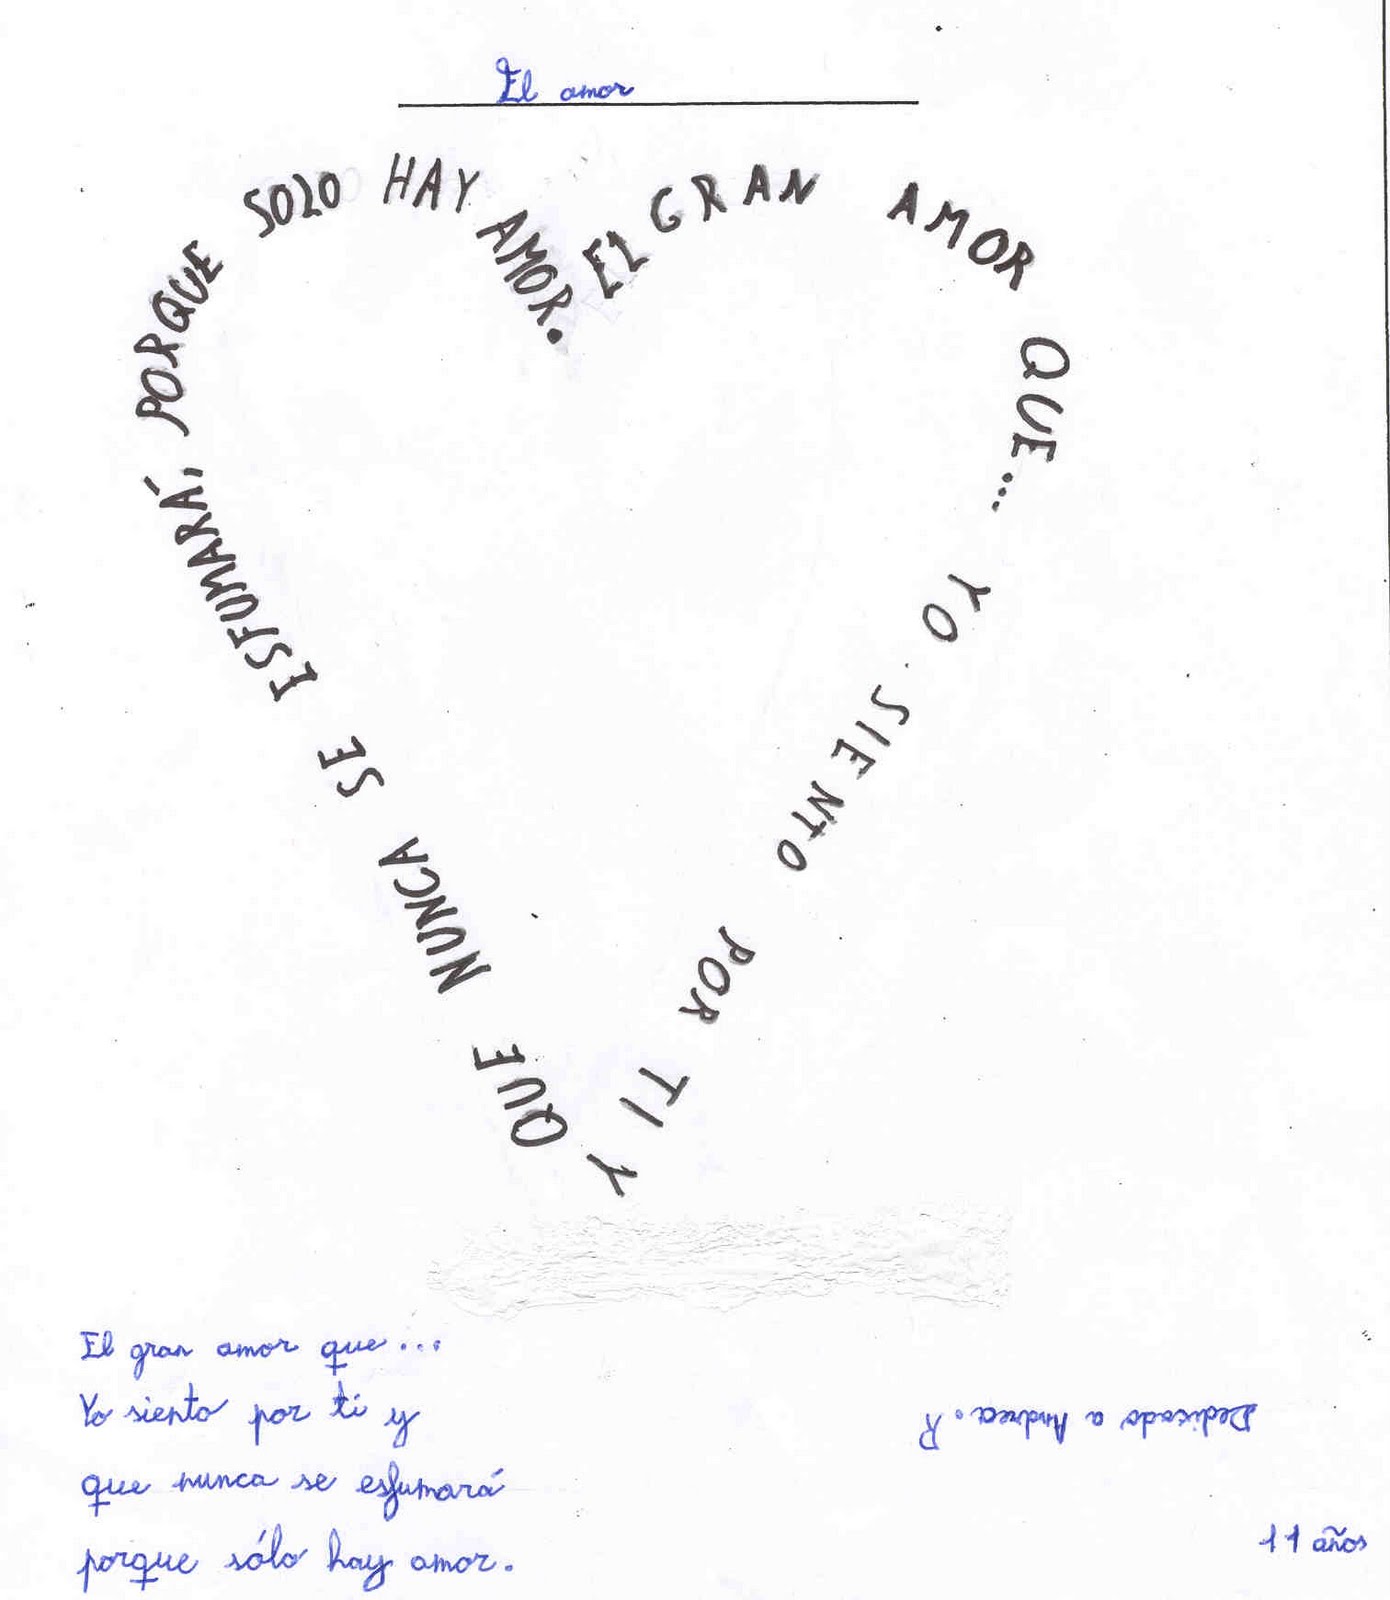 El amor
EL GRAN AMOR QUE... YO SIENTO POR TI Y QUE NUNCA SE ESFUMARÁ, PORQUE SOLO HAY AMOR.
El gran amor que...
Yo siento por ti y
que nunca se esfumará
porque sólo hay amor.
Dedicado a Andrea. R
11 años